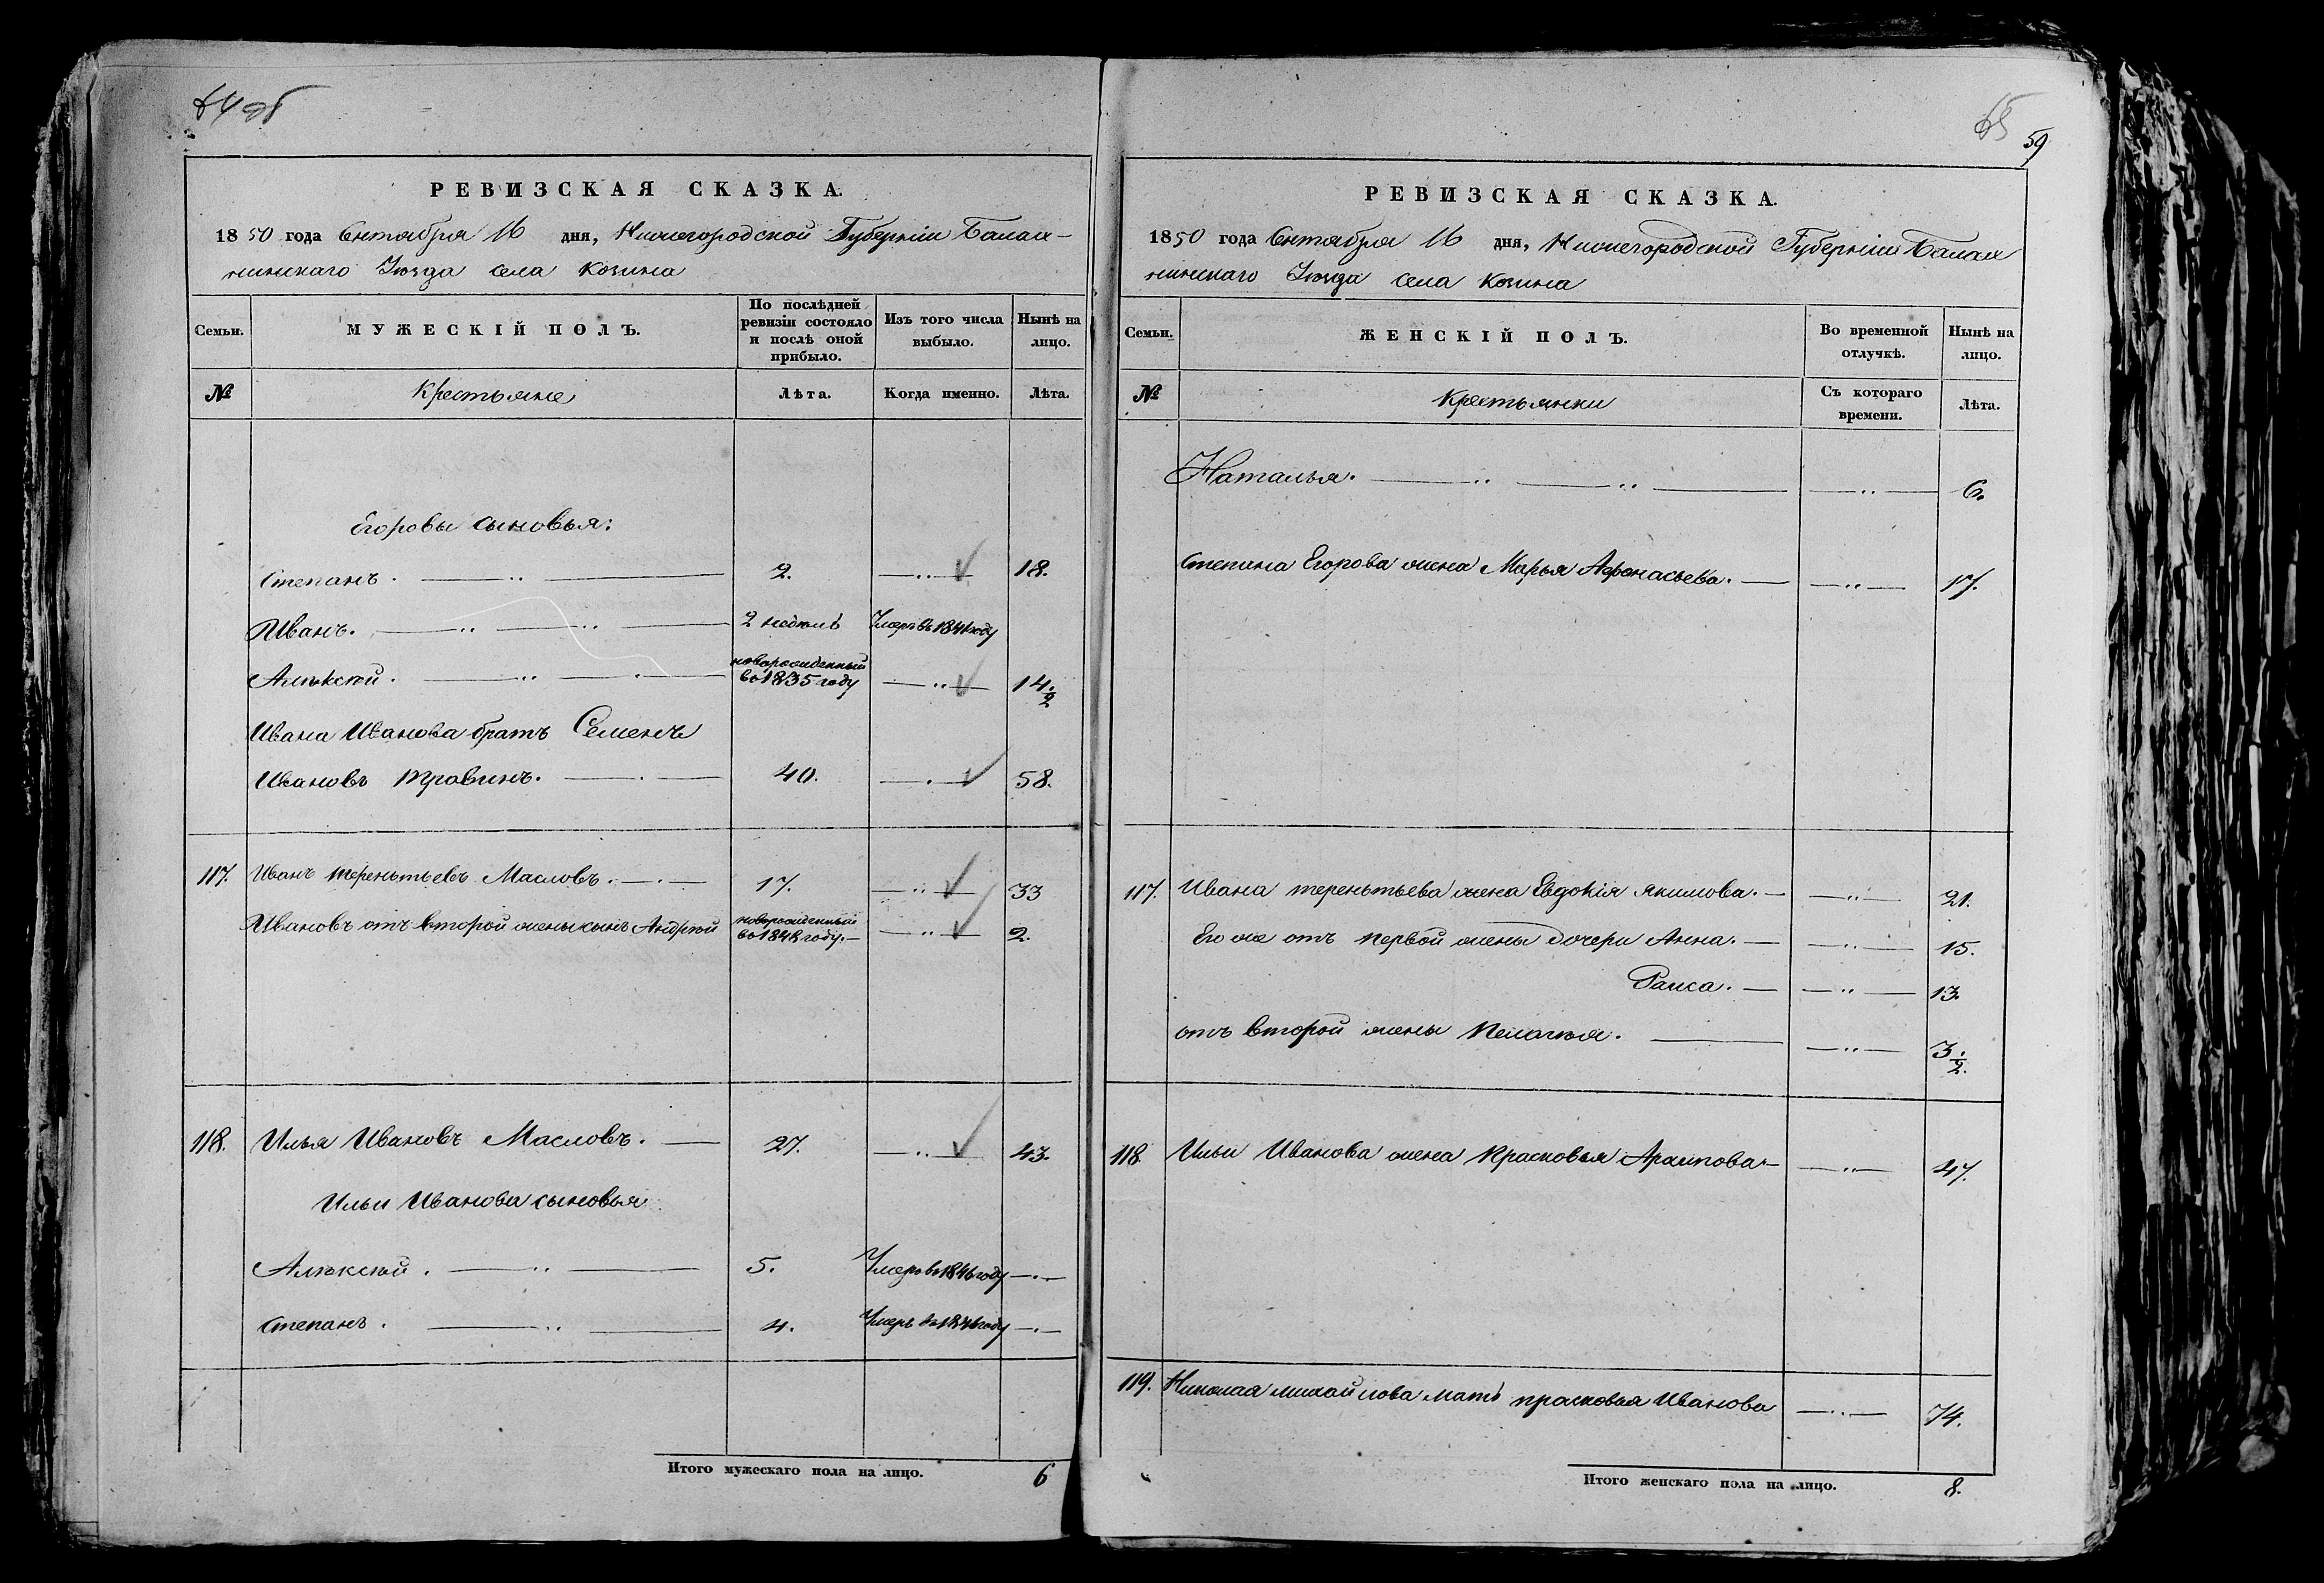 64 об
РЕВИЗСКАЯ СКАЗКА.
1850 года Октября 16 дня, Нижегородской Губерніи Балах-
нинскаго Уѣзда села Козина
Семьи.
МУЖЕСКІЙ ПОЛЪ.
По послѣдней
ревизіи состояло
и послѣ оной
прибыло.
Изъ того числа
выбыло.
Нынѣ на
лицо.
№
Крестьяне
Лѣта.
Когда именно.
Лѣта.
Егоровы сыновья:
Степанъ. 2. 18.
Иванъ. 2 недель Умеръ въ 1841 году
новорожденный
Алѣксѣй. во 1835 году 14 1/2
Ивана Иванова братъ Семенъ
Ивановъ Травинъ. 40. 58.
117. Иванъ Терентьевъ Масловъ. 17. 33
новорожденный
Ивановъ отъ второй жены сынъ Андрѣй во 1848 году. 2.
118. Илья Ивановъ Масловъ. 27. 43.
Ильи Иванова сыновья
Алѣксѣй. 5. Умеръ во 1846 году
Степанъ. 4. Умеръ во 1846 году
Итого мужескаго пола на лицо. 6
65
59
РЕВИЗСКАЯ СКАЗКА.
1850 года Октября 16 дня, Нижегородской Губерніи Балах
нинскаго Уѣзда села Козина
Семьи.
ЖЕНСКІЙ ПОЛЪ.
Во временной
отлучкѣ.
Нынѣ на
лицо.
№
Крестьянки
Съ котораго
времени.
Лѣта.
Наталья. 6.
Степана Егорова жена Марья Афонасьева. 17.
117. Ивана Терентьева жена Евдокія Якимова. 21.
Его же отъ первой жены дочери Анна. 15.
Раиса. 13.
отъ второй жены Пелагѣя. 3 1/2.
118. Ильи Иванова жена Прасковья Архипова 47.
119. Николая Михайлова мать Прасковья Иванова 74.
Итого женскаго пола на лицо. 8.